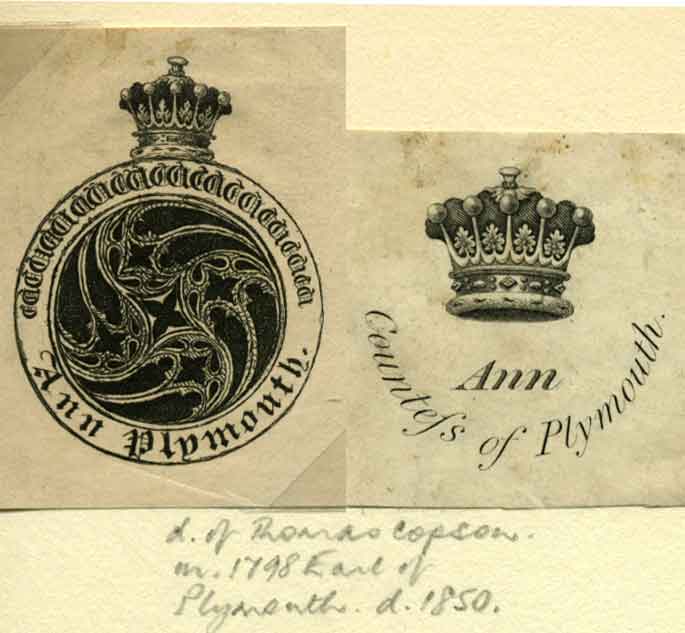 Ann Plymouth.
Ann
Counteſs of Plymouth.
d. of Thomas Copson.
m. 1798 Earl of
Plymouth. d. 1850.